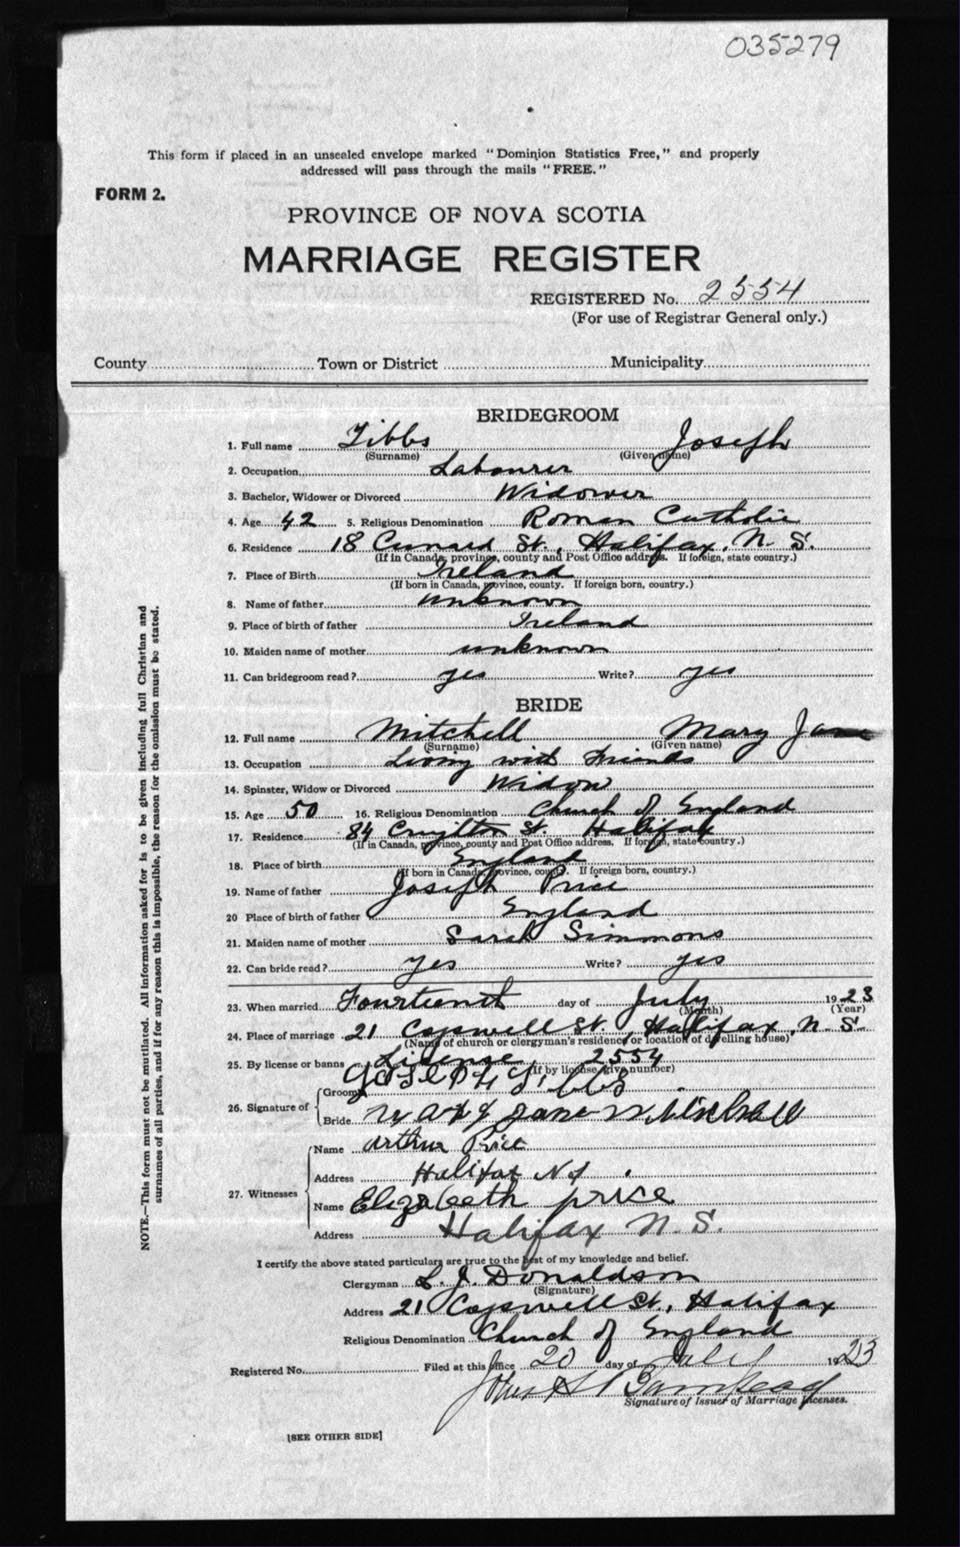 035279
This form if placed in an unsealed envelope marked "Dominion Statistics Free," and properly
addressed will pass through the mails "FREE."
FORM 2.
PROVINCE OF NOVA SCOTIA
MARRIAGE REGISTER
REGISTERED No. 2554
(For use of Registrar General only.)
County Town or District Municipality
BRIDEGROOM
1. Full name Tibbs Joseph
(Surname) (Given name)
2. Occupation Labourer
3. Bachelor, Widower or Divorced Widower
4. Age 42 5. Religious Denomination Roman Catholic
6. Residence 18 Cunard St., Halifax, N. S.
(If in Canada, province, county and Post Office address. If foreign, state country.)
7. Place of Birth Ireland
(If born in Canada, province, county. If foreign born, country.)
8. Name of father unknown
9. Place of birth of father Ireland
10. Maiden name of mother unknown
11. Can bridegroom read? yes Write? yes
BRIDE
12. Full name Mitchell Mary Jane
(Surname) (Given name)
13. Occupation Living with Friends
14. Spinster, Widow or Divorced Widow
15. Age 50 16. Religious Denomination Church of England
17. Residence 84 St. Halifax
(If in Canada, province, county and Post Office address. If foreign, state country.)
18. Place of birth England
(If born in Canada, province, county. If foreign born, country.)
19. Name of father Joseph Price
20 Place of birth of father England
21. Maiden name of mother Sarah Simmons
22. Can bride read? yes Write? yes
23. When married Fourteenth day of July 1923
(Month) (Year)
24. Place of marriage 21 Cogswell St., Halifax, N. S.
(Name of church or clergyman's residence or location of dwelling house)
25. By license or banns License, 2554
(If by license, give number)
26. Signature of Groom Joseph Tibbs
Bride Mary Jane Mitchell
27. Witnesses Name Arthur Price
Address Halifax N S
Name Elizabeth price
Address Halifax N. S.
I certify the above stated particulars are true to the best of my knowledge and belief.
Clergyman L. J. Donaldson
(Signature)
Address 21 Cogswell St., Halifax
Religious Denomination Church of England
Registered No. Filed at this office 20 day of July 1923
Signature of Issuer of Marriage Licenses.
[SEE OTHER SIDE]
NOTE.—This form must not be mutilated. All information asked for is to be given including full Christian and
surnames of all parties, and if for any reason this is impossible, the reason for the omission must be stated.